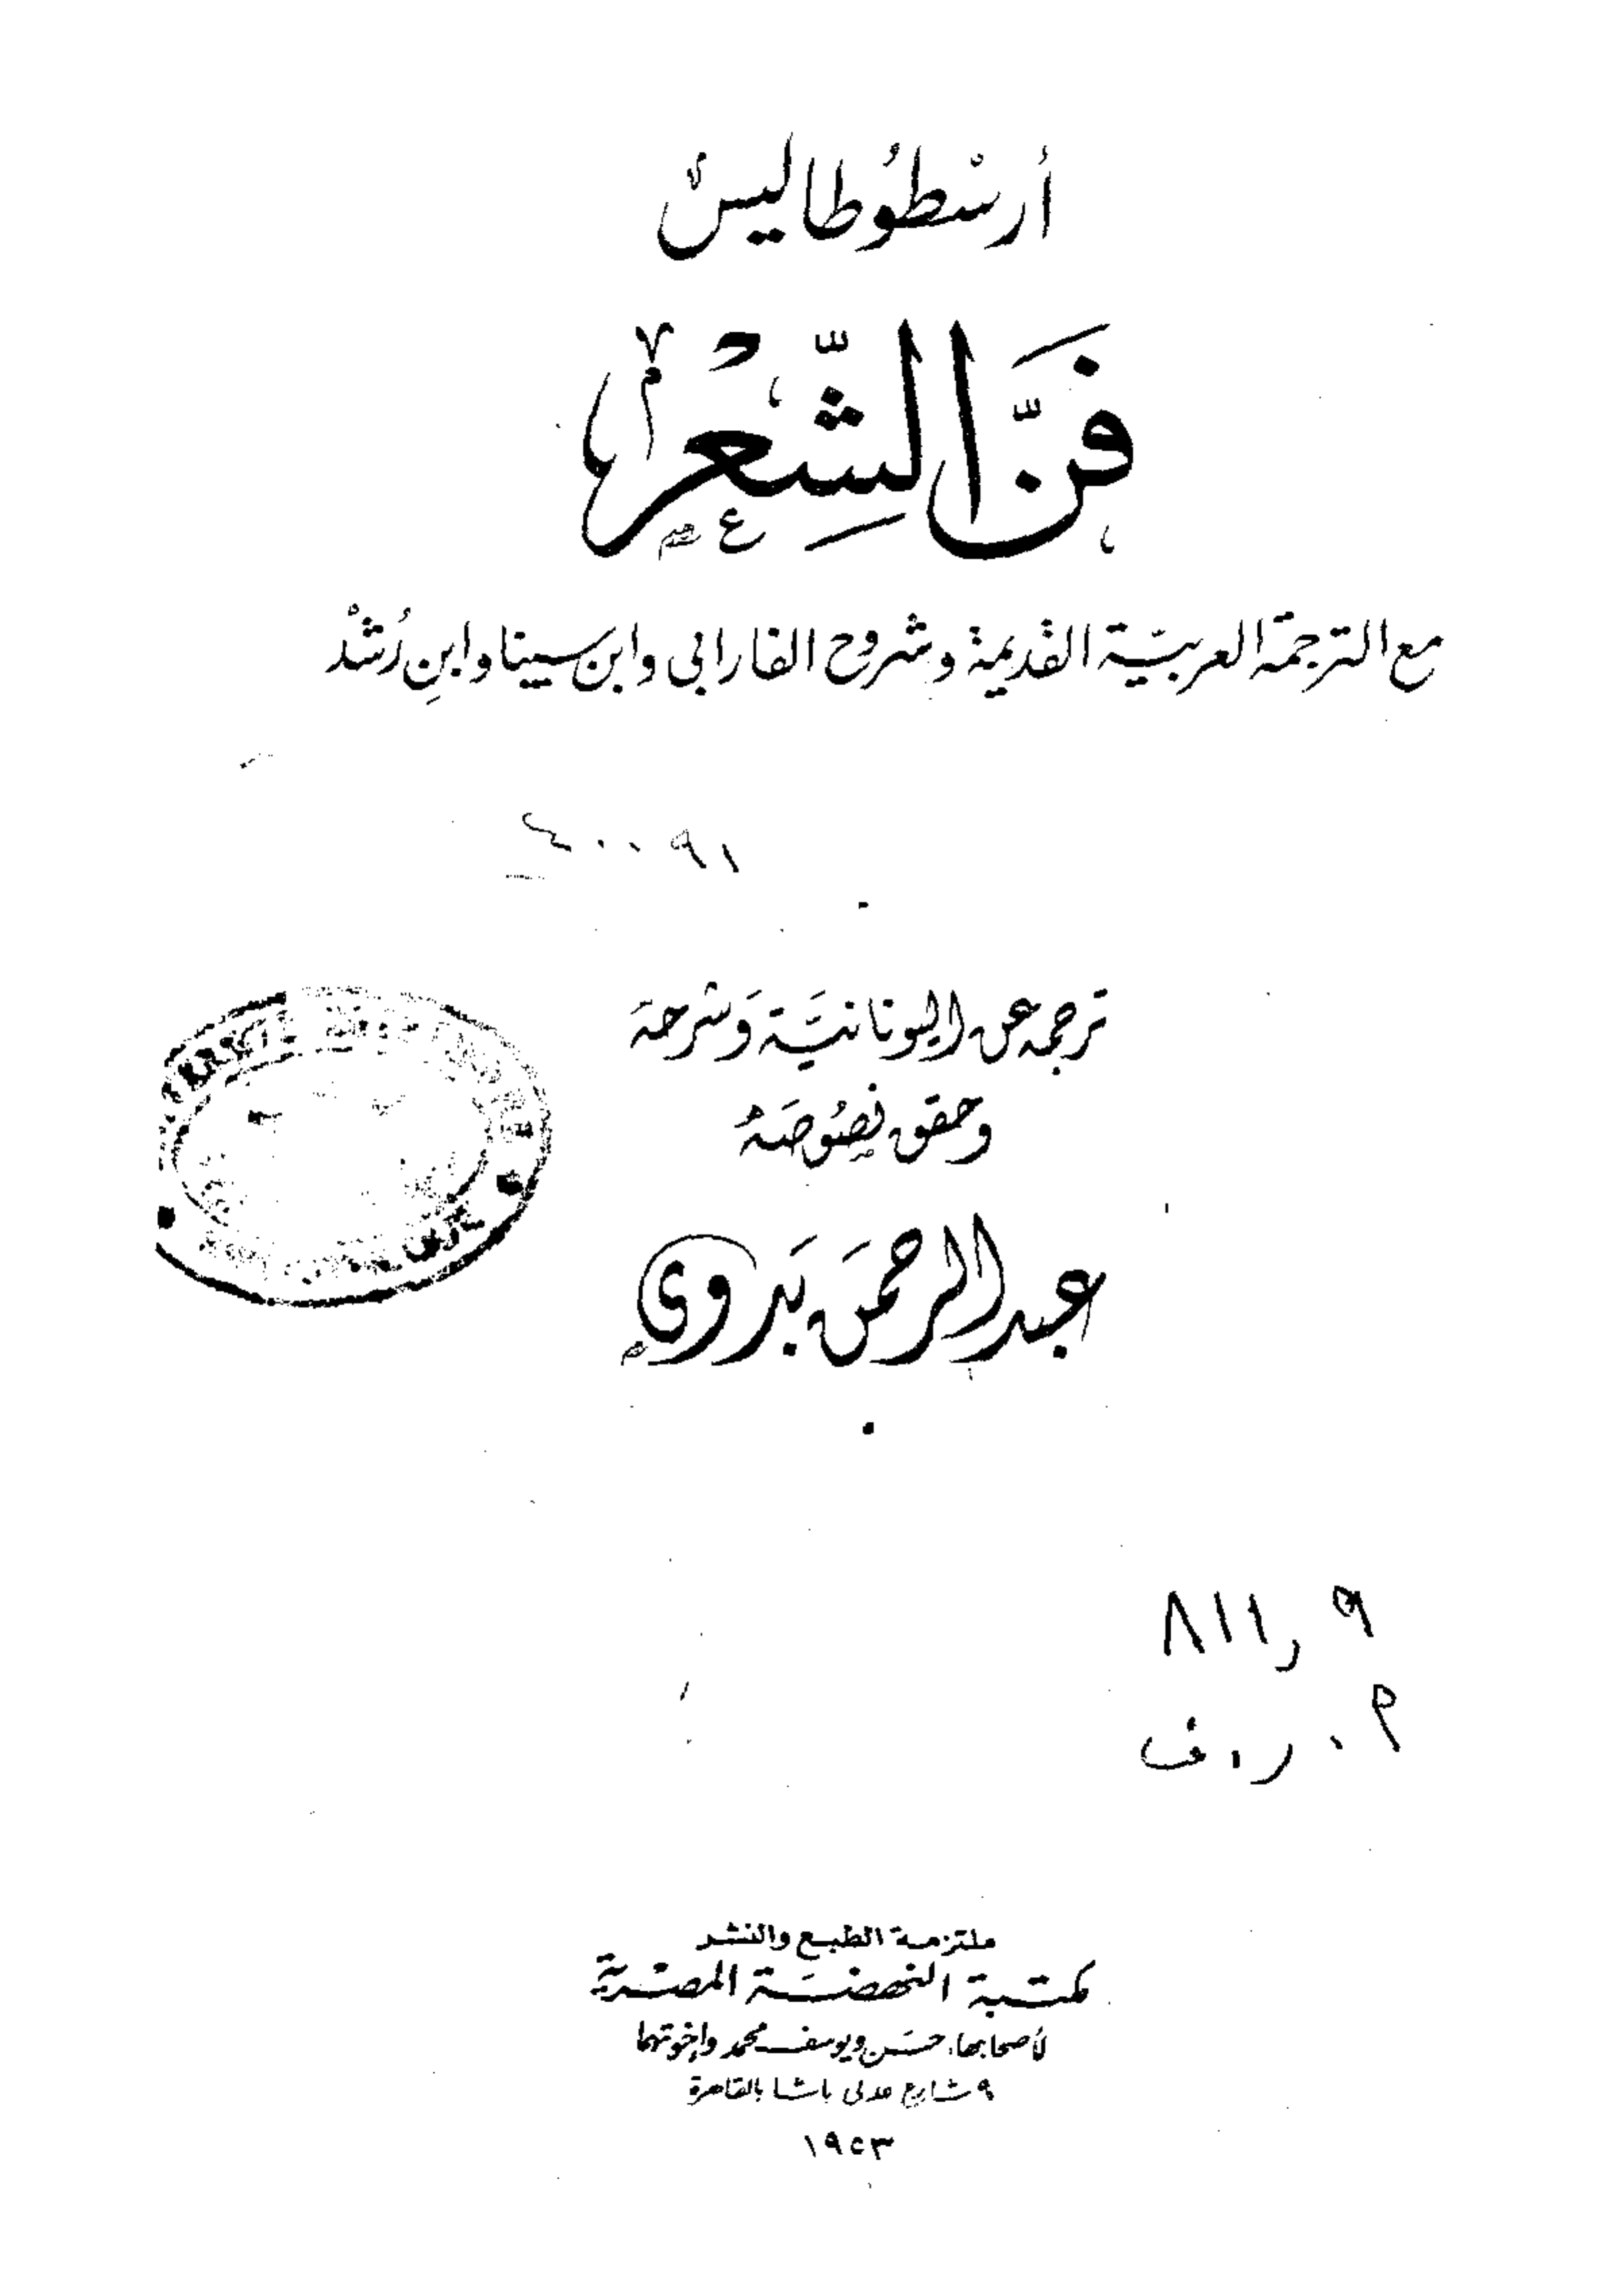 أرسْطوُطاليسْ
فَنّ الشِّعْر
مع الترجمة العربيّة القديمة وشروح الفارابي وابن سينا وابنِ رُشدْ
٤٠٠٩١
ترجمه عن اليونانيَّة وَشرحهَ
وحقق نصُوصَهُ
عبد الرحمَن بَدوي
٨١١,٩
ملتزمة الطبع والنشر
مكتبة النهضَة المصْرية
لأصحابها حسَن ويوسف محمد وإخوتهما
٩ شارع عدلى باشا بالقاهرة
١٩٥٣